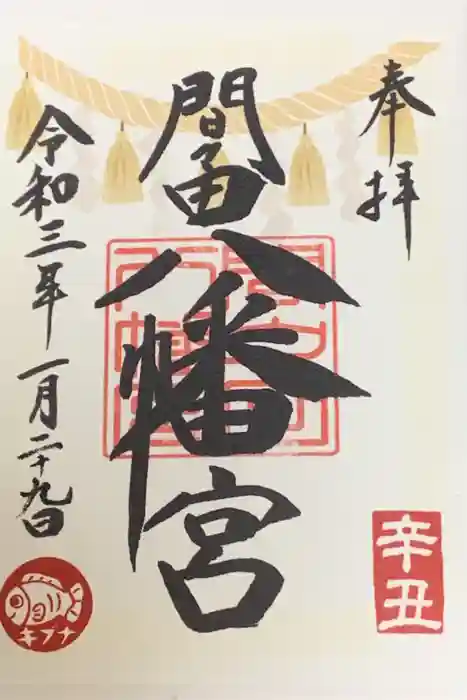 奉拝
辛丑
間々田八幡宮
令和三年一月二十九日
キブナ